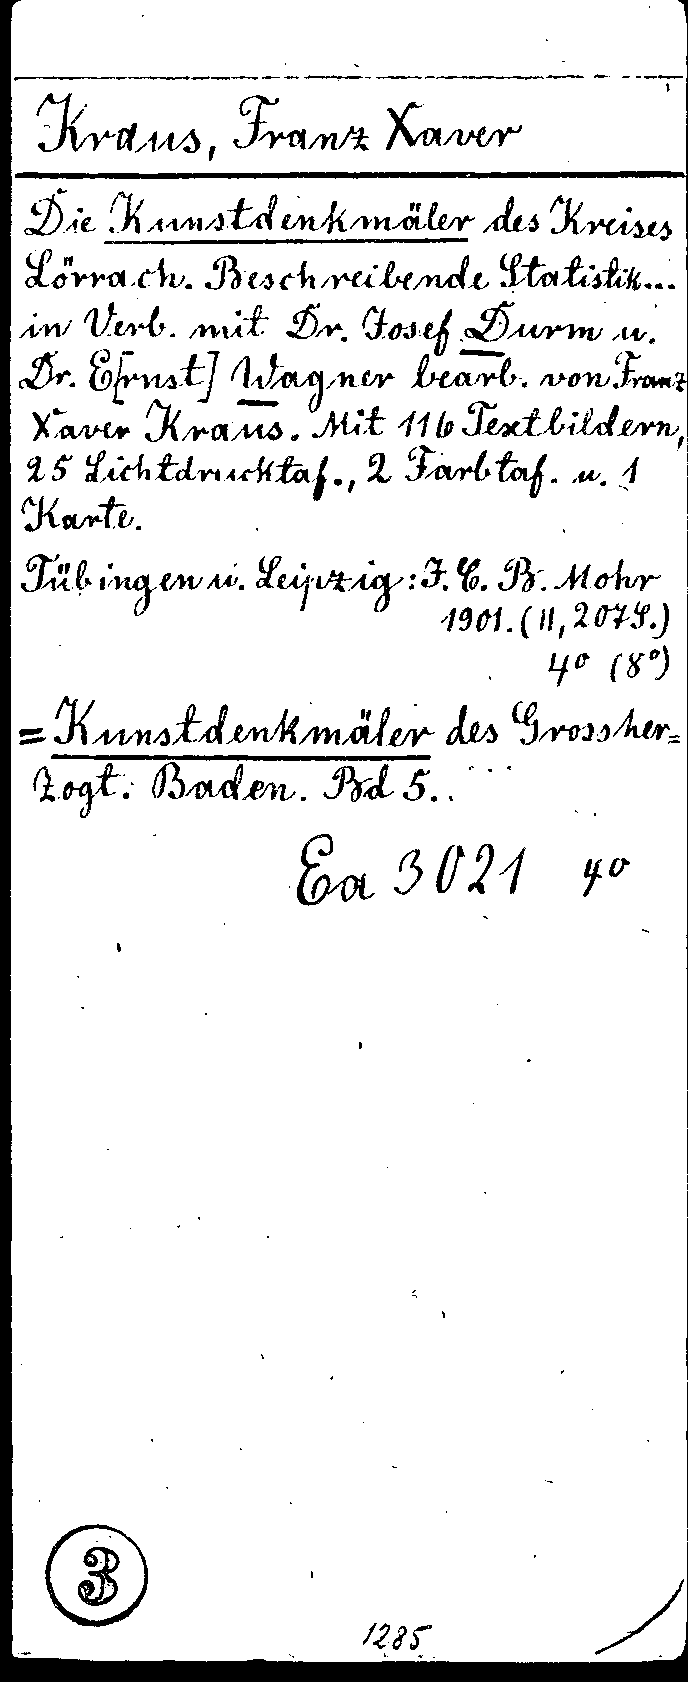 Kraus, Franz Xaver
Die Kunstdenkmäler des Kreises
Lörrach. Beschreibende Statistik...
in Verb. mit Dr. Josef Durm u.
Dr. E[rnst] Wagner bearb. von Franz
Xaver Kraus. Mit 116 Textbildern,
25 Lichtdrucktaf., 2 Farbtaf. u. 1
Karte.
Tübingen u. Leipzig: J. C. B. Mohr
1901. (II, 207 S.)
4° (8°)
= Kunstdenkmäler des Grossher=
zogt. Baden. Bd 5..
Ea 3021 4°
3
1285